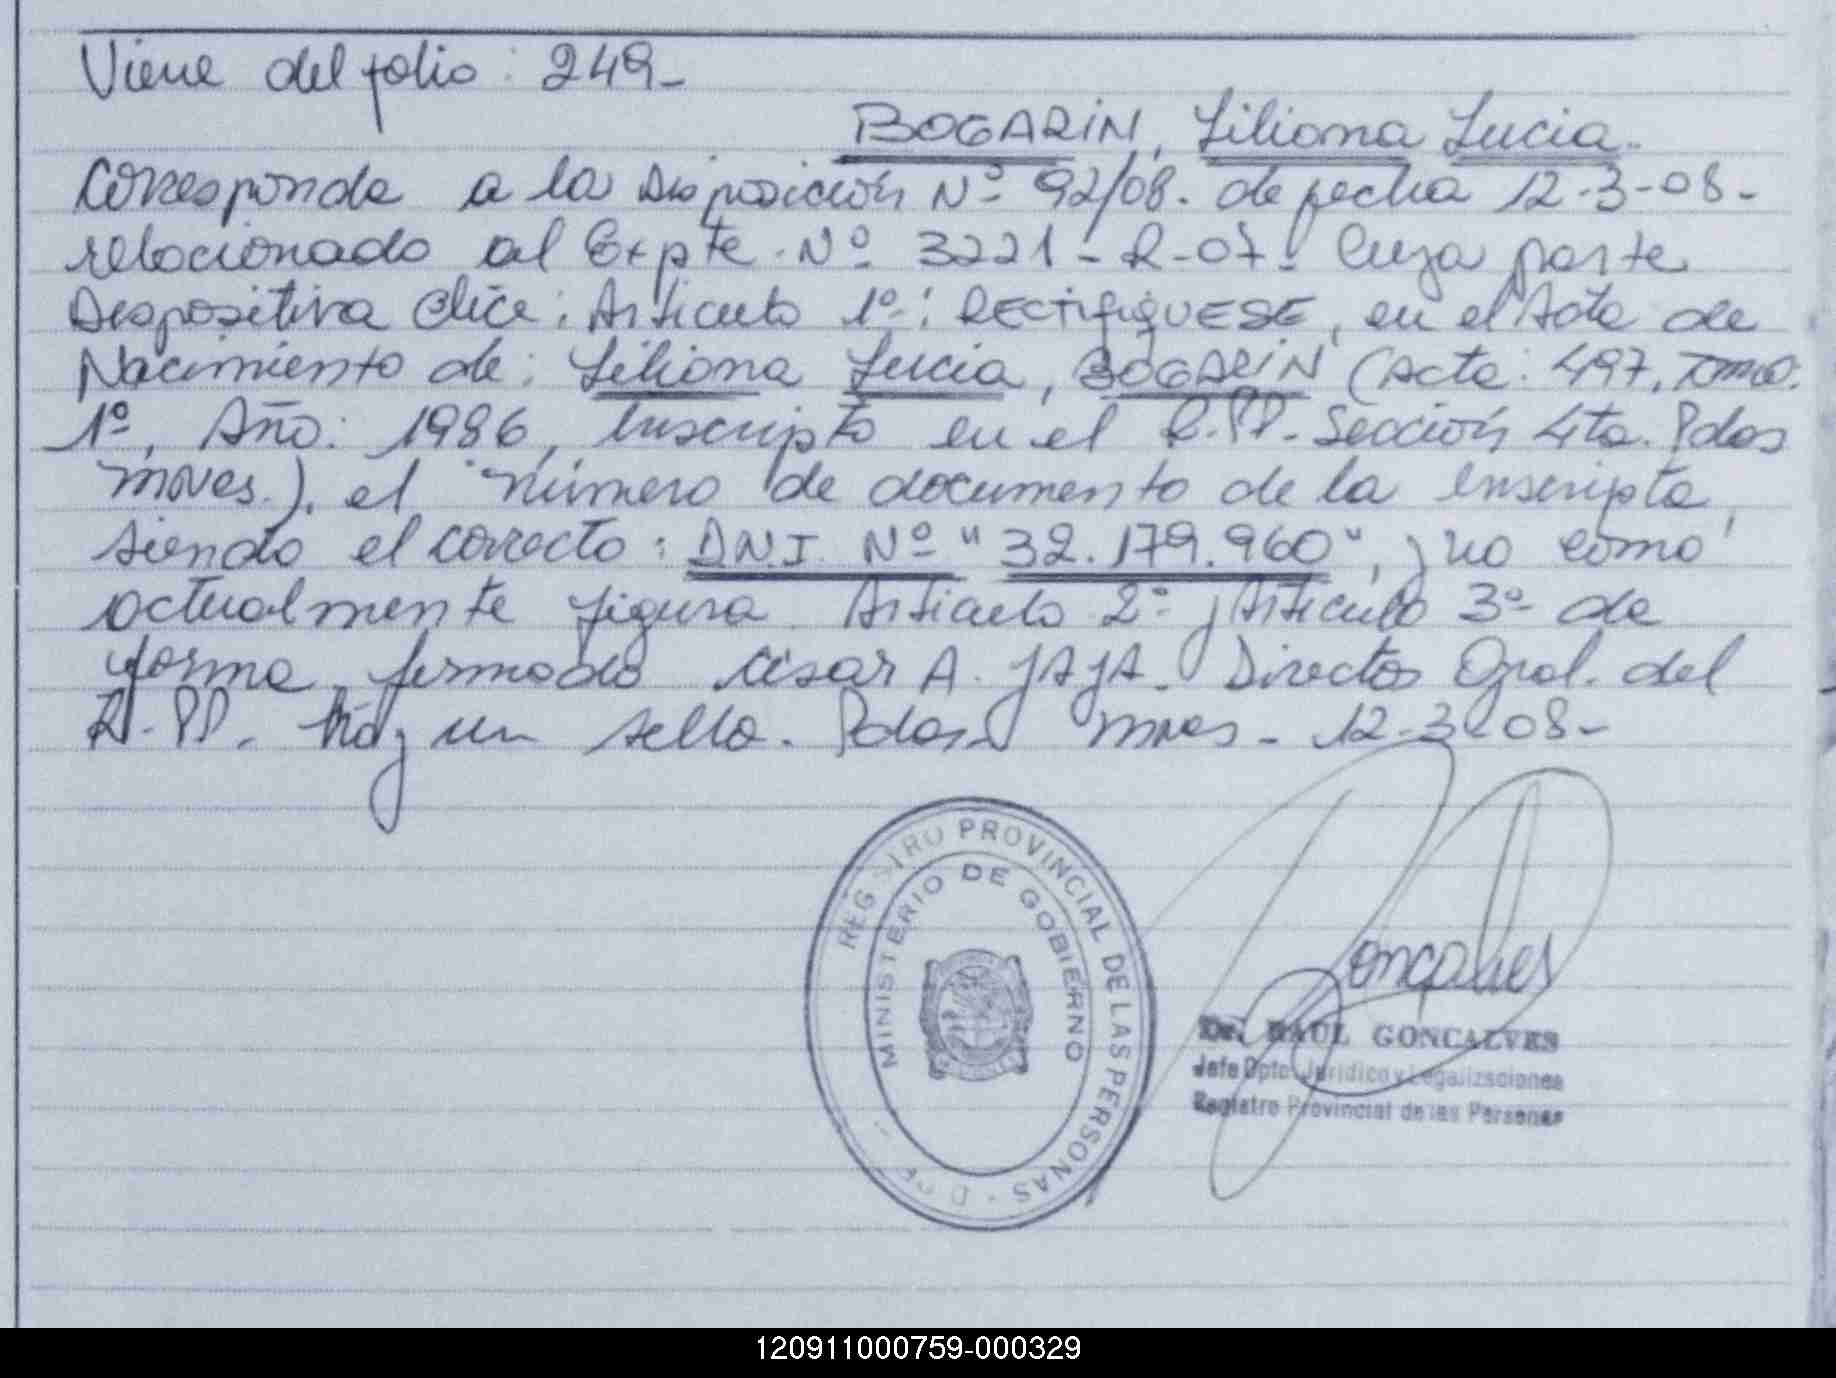 Viene del folio: 249-
BOGARIN, Liliana Lucia.
Corresponde a la Disposición Nº 92/08. de fecha 12-3-08-
relacionado al Expte. Nº 3221-R-07- Cuya parte
Dispositiva dice: Articulo 1º: RECTIFIQUESE, en el Acta de
Nacimiento de: Liliana Lucia, BOGARIN (Acta: 497, Tomo:
1º, Año: 1986, Inscripto en el R.PP. Sección 4ta. Pdas
Mnes.). el número de documento de la Inscripta,
siendo el correcto: D.N.I. Nº "32.179.960", y no como
actualmente figura. Articulo 2º y Articulo 3º de
forma, firmado César A. JAJA. Director Gral. del
R.PP. Hay un sello. Pdas Mnes - 12-3-08-
REGISTRO PROVINCIAL DE LAS PERSONAS
MINISTERIO DE GOBIERNO
Gonçalves
Dr. RAUL GONCALVES
Jefe Dpto. Jurídico y Legalizaciones
Registro Provincial de las Personas
120911000759-000329